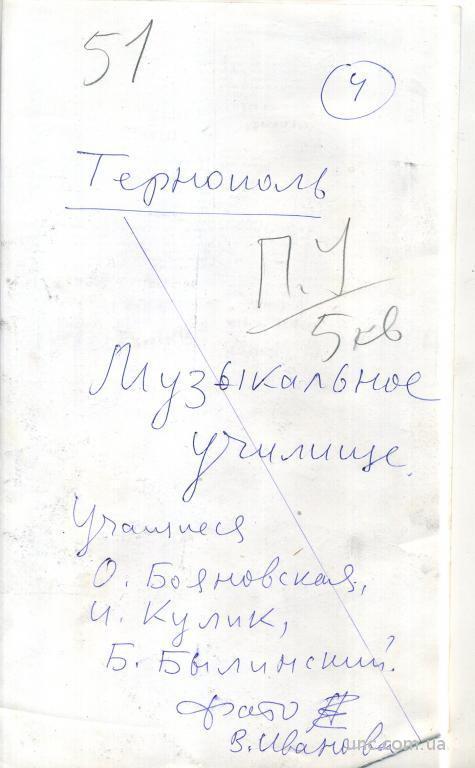 51
4
Тернополь
П. 1
5 кв
Музыкальное
училище.
Учащиеся
О. Бояновская,
И. Кулик,
Б. Былинский.
фото
В. Иванова
unc.com.ua